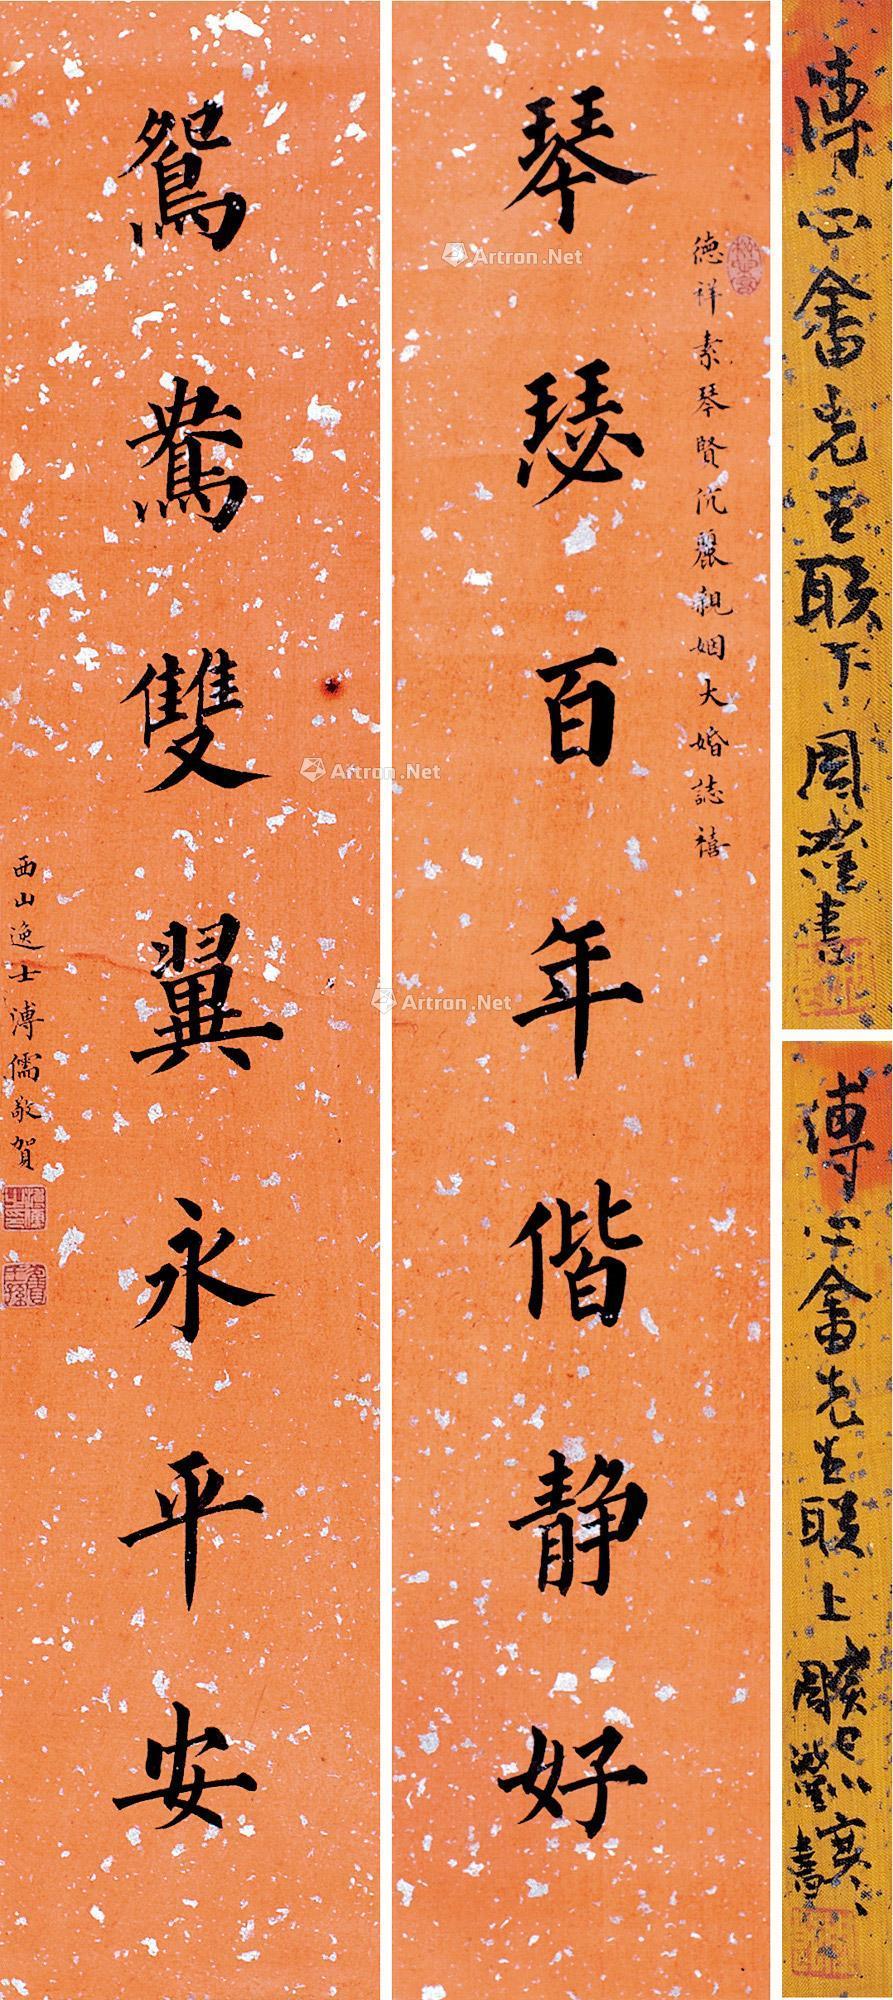 琴瑟百年偕静好
德祥素琴賢伉麗親姻大婚誌禧
鴛鴦雙翼永平安
西山逸士溥儒敬賀
溥心畬先生联下
溥心畬先生联上
Artron.Net
Artron.Net
Artron.Net